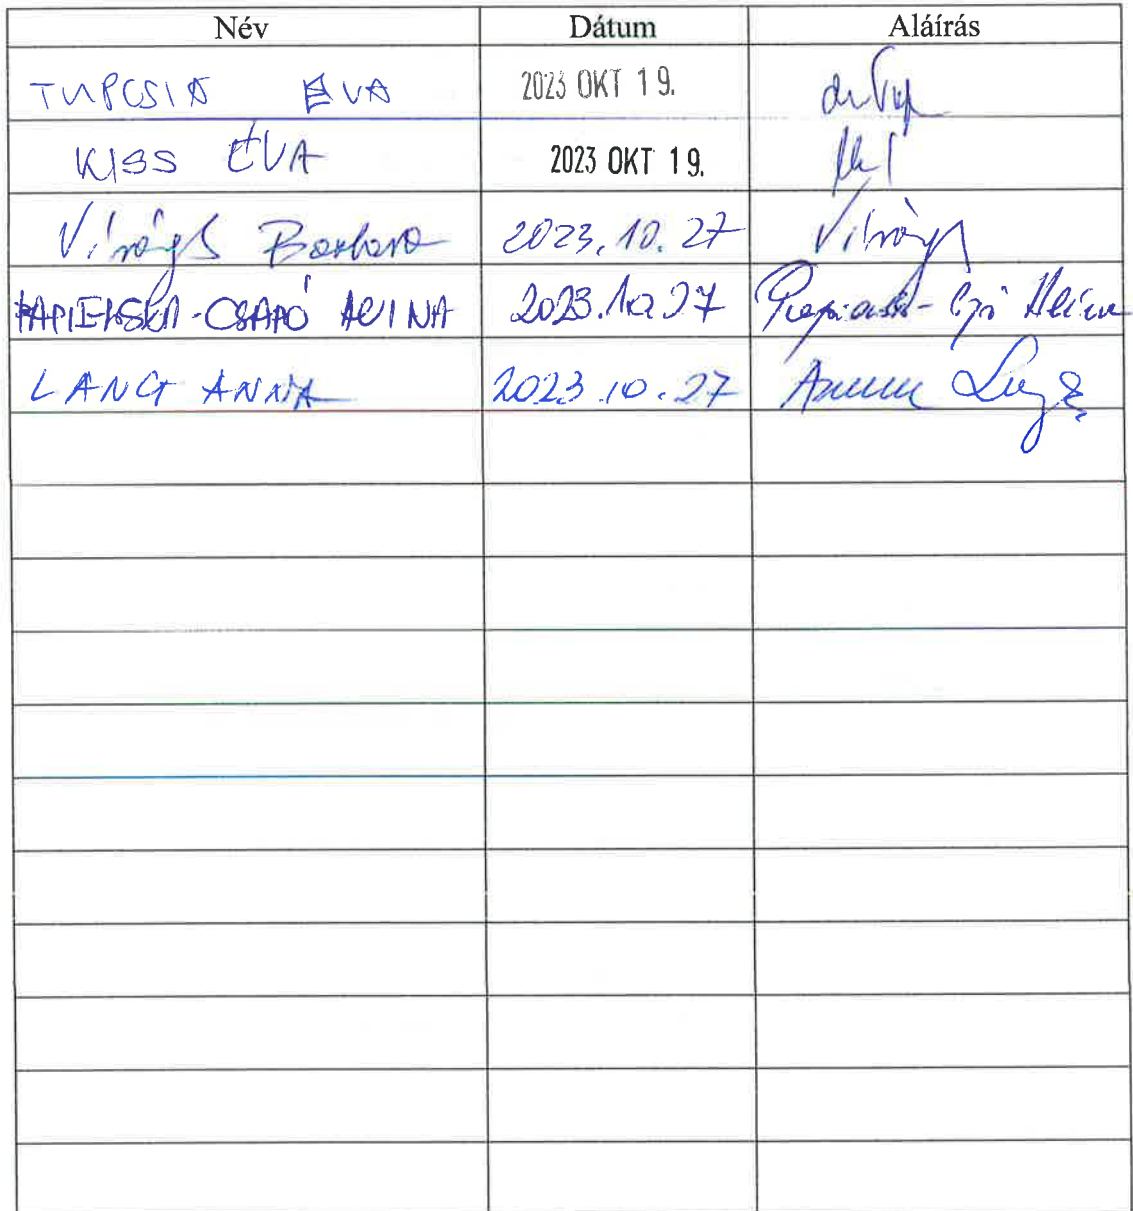 Név Dátum Aláírás
TUPCSIA ÉVA 2023 OKT 19.
KISS ÉVA 2023 OKT 19.
Virágh Barbara 2023.10.27 Virágh
CSAPÓ ALINA 2023.10.27
LANG ANNA 2023.10.27 Anna Lang